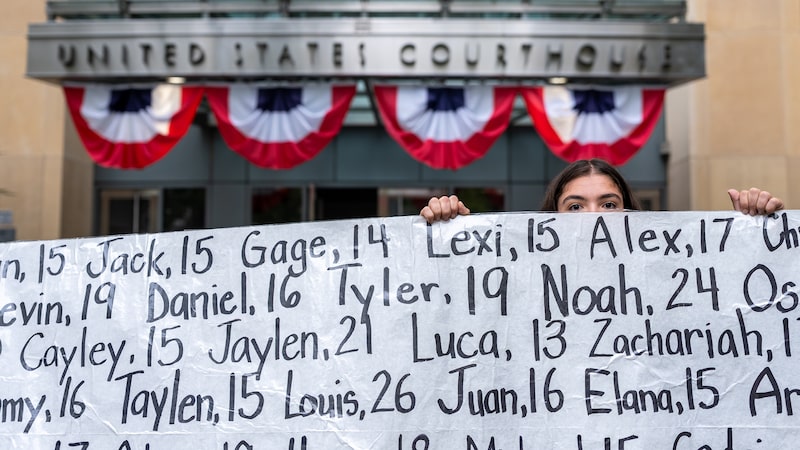 UNITED STATES COURTHOUSE
15 Jack, 15 Gage, 14 Lexi, 15 Alex, 17
19 Daniel, 16 Tyler, 19 Noah, 24
Cayley, 15 Jaylen, 21 Luca, 13 Zachariah,
16 Taylen, 15 Louis, 26 Juan, 16 Elana, 15